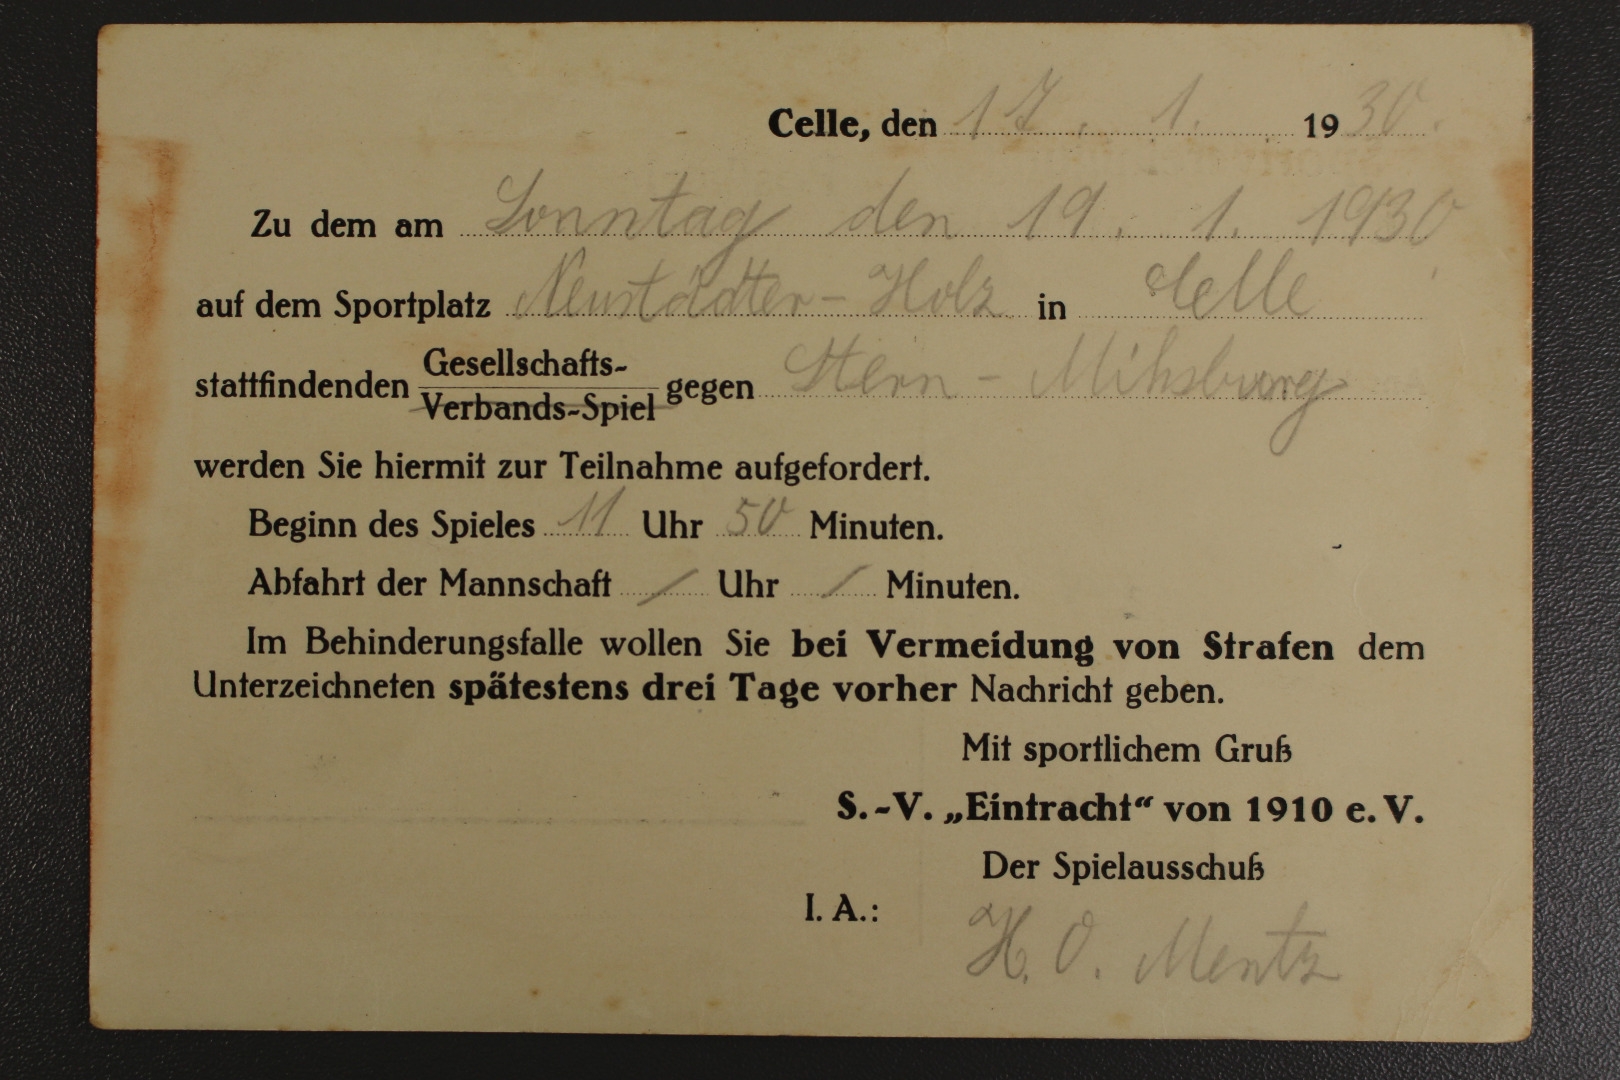 Celle, den 17. 1. 1930.
Zu dem am Sonntag den 19. 1. 1930
auf dem Sportplatz Neustädter-Holz in Celle
stattfindenden Gesellschafts-
Verbands-Spiel gegen Stern-Mihsburg
werden Sie hiermit zur Teilnahme aufgefordert.
Beginn des Spieles 11 Uhr 50 Minuten.
Abfahrt der Mannschaft / Uhr / Minuten.
Im Behinderungsfalle wollen Sie bei Vermeidung von Strafen dem
Unterzeichneten spätestens drei Tage vorher Nachricht geben.
Mit sportlichem Gruß
S.-V. „Eintracht“ von 1910 e. V.
Der Spielausschuß
I. A.: H. O. Mentz